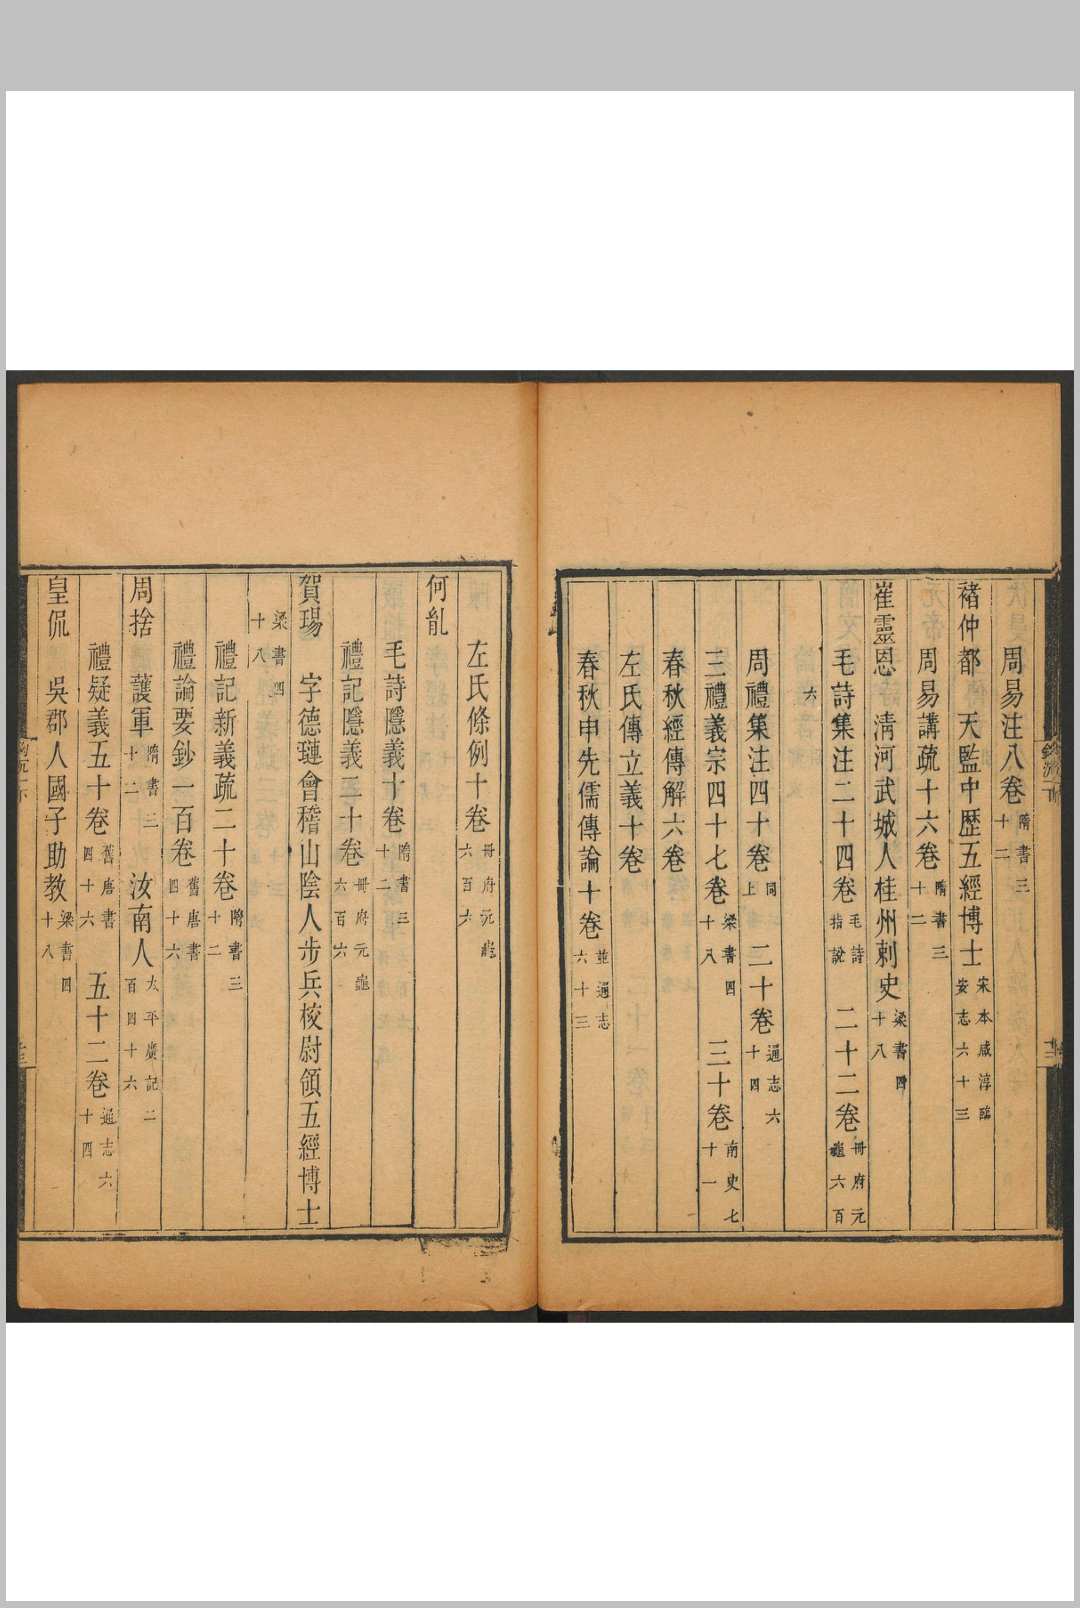 周易注八卷隋書三十二
褚仲都 天監中歷五經博士宋本咸淳臨安志六十三
周易講疏十六卷隋書三十二
崔靈恩 淸河武城人桂州刺史梁書四十八
毛詩集注二十四卷毛詩指說 二十二卷冊府元龜六百
六
周禮集注四十卷同上 二十卷通志六十四
三禮義宗四十七卷梁書四十八 三十卷南史七十一
春秋經傳解六卷
左氏傳立義十卷
春秋申先儒傳論十卷並通志六十三
左氏條例十卷冊府元龜六百六
何胤
毛詩隱義十卷隋書三十二
禮記隱義二十卷冊府元龜六百六
賀瑒 字德璉會稽山陰人步兵校尉領五經博士
梁書四十八
禮記新義疏二十卷隋書三十二
禮論要鈔一百卷舊唐書四十六
周捨 護軍隋書三十二 汝南人太平廣記二百四十六
禮疑義五十卷舊唐書四十六 五十二卷通志六十四
皇侃 吳郡人國子助教梁書四十八